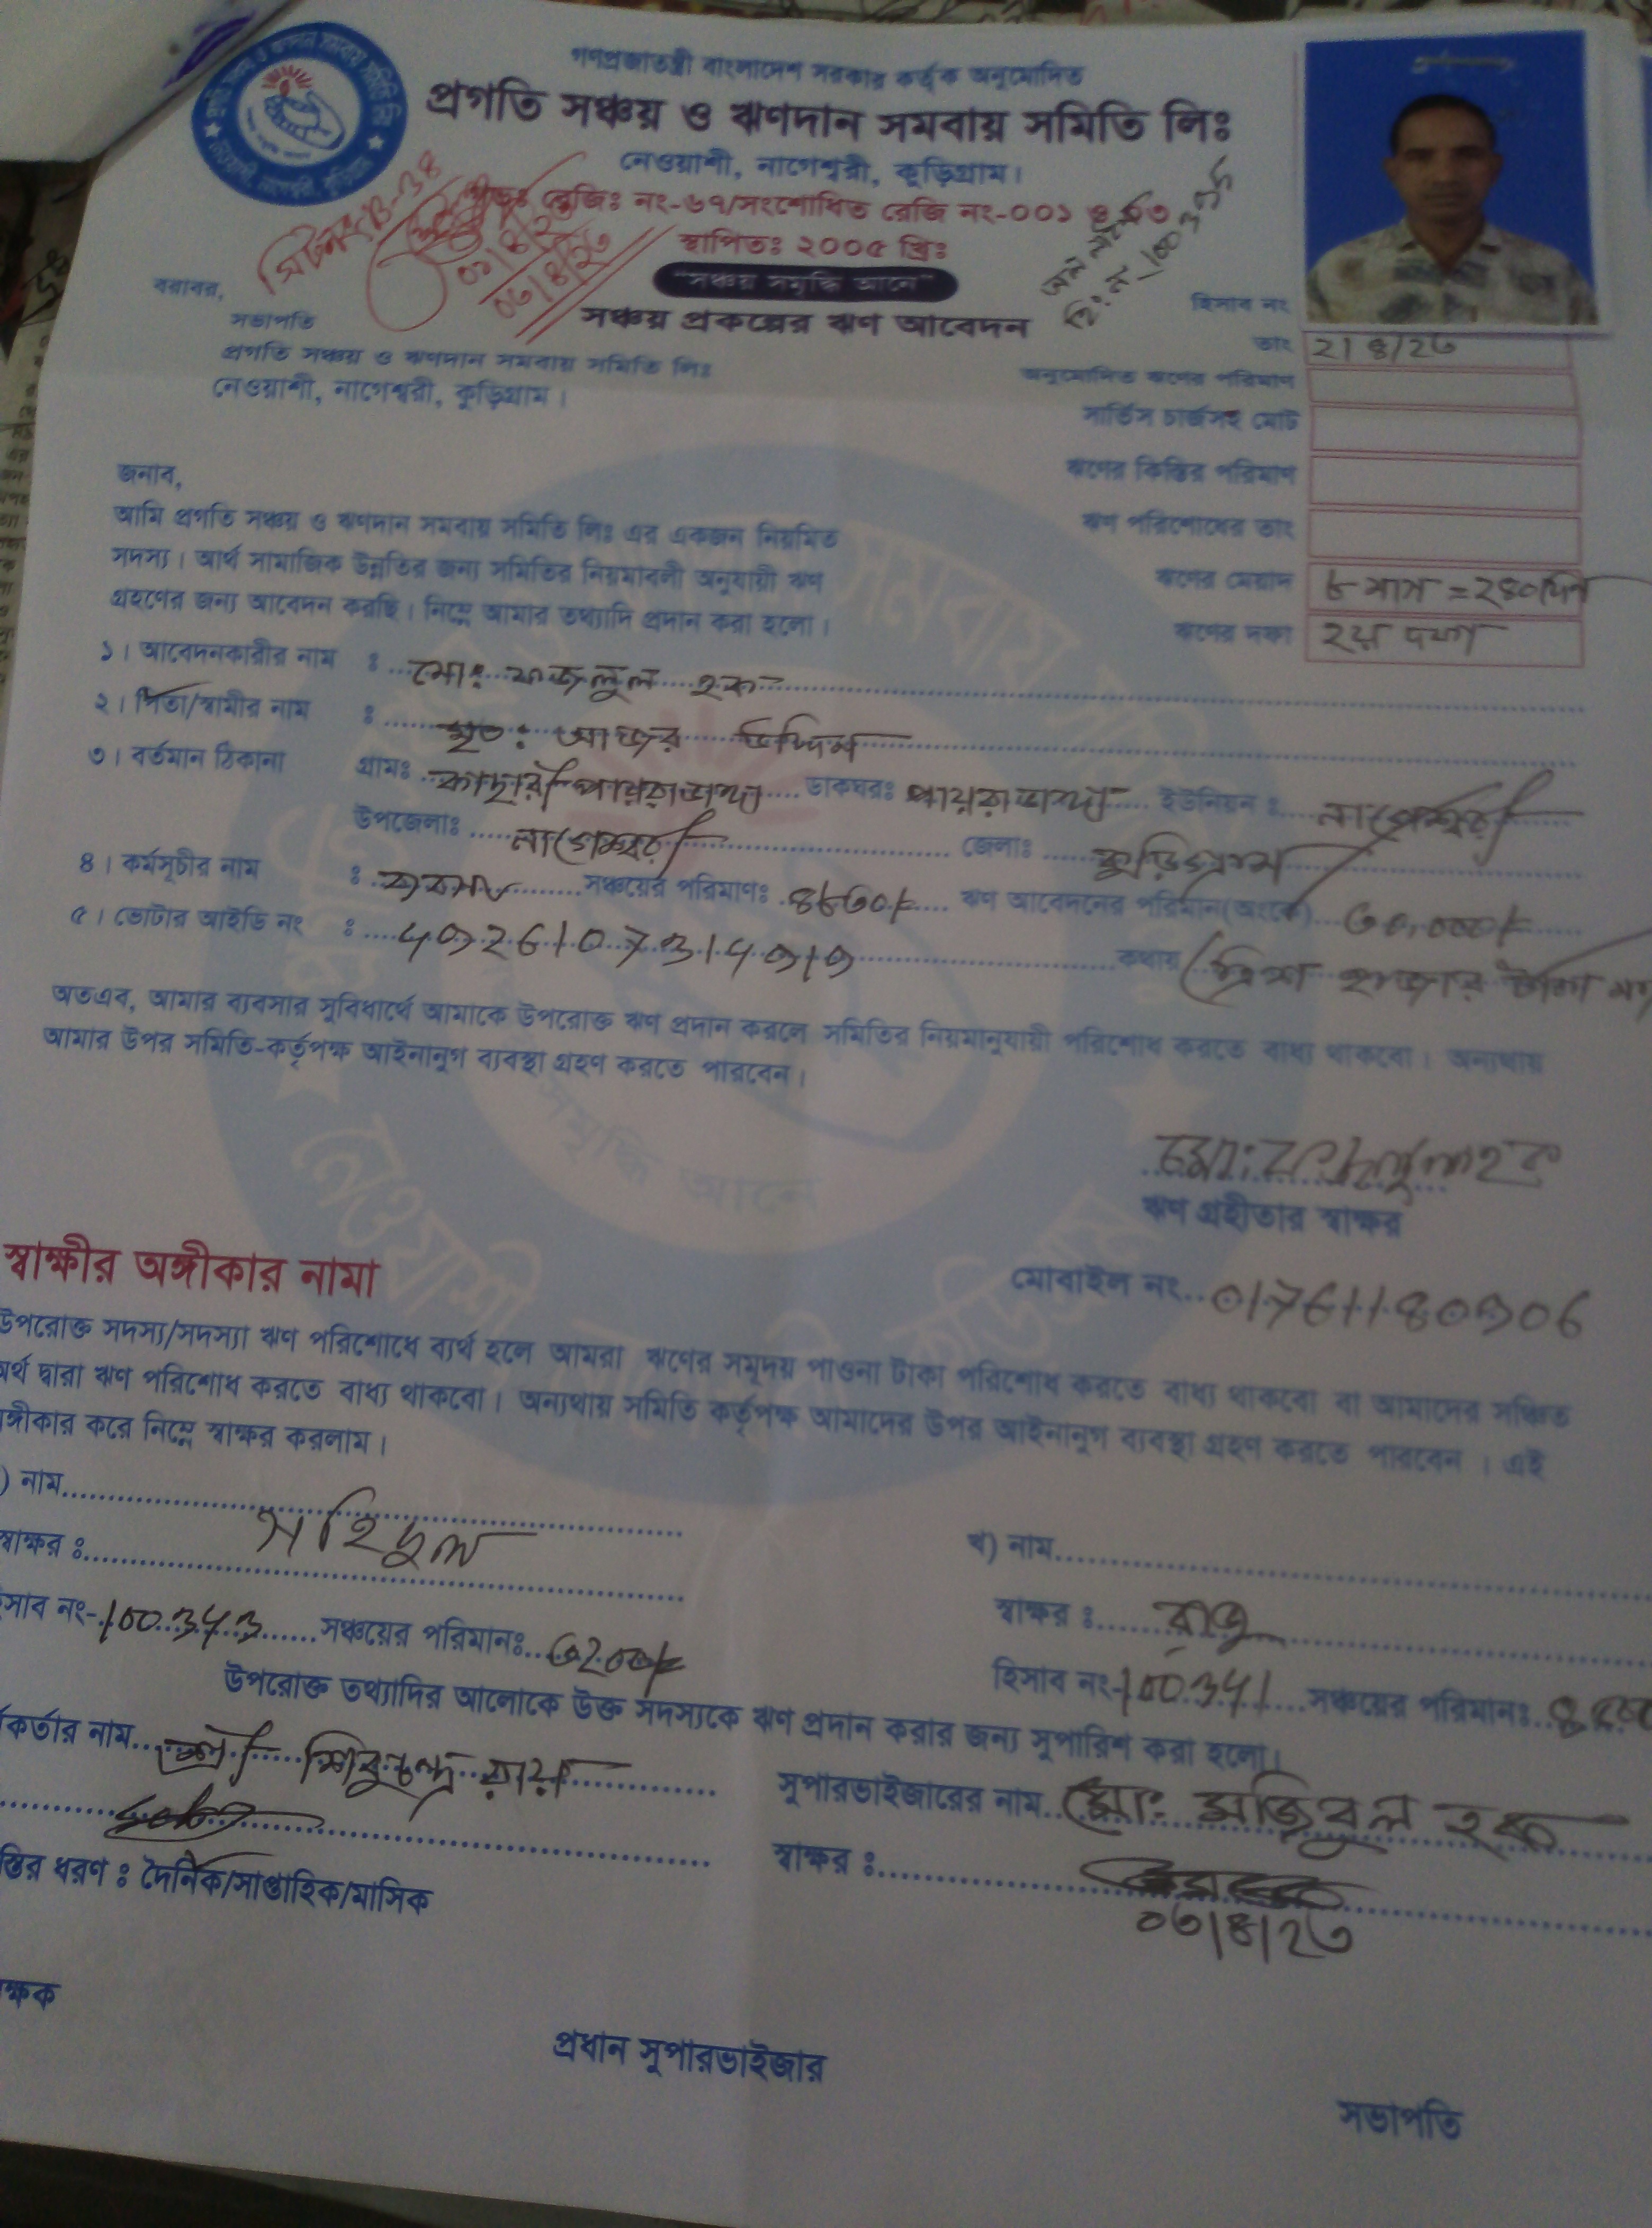 গণপ্রজাতন্ত্রী বাংলাদেশ সরকার কর্তৃক অনুমোদিত
প্রগতি সঞ্চয় ও ঋণদান সমবায় সমিতি লিঃ
নেওয়াশী, নাগেশ্বরী, কুড়িগ্রাম।
রেজিঃ নং-৬৭/সংশোধিত রেজি নং-০০১
স্থাপিতঃ ২০০৫ খ্রিঃ
"সঞ্চয় সমৃদ্ধি আনে"
সঞ্চয় প্রকল্পের ঋণ আবেদন
০৩/৪/২৩
বরাবর,
সভাপতি
প্রগতি সঞ্চয় ও ঋণদান সমবায় সমিতি লিঃ
নেওয়াশী, নাগেশ্বরী, কুড়িগ্রাম।
হিসাব নং
তাং ২/৪/২৩
অনুমোদিত ঋণের পরিমাণ
সার্ভিস চার্জসহ মোট
ঋণের কিস্তির পরিমাণ
ঋণ পরিশোধের তাং
ঋণের মেয়াদ ৮ মাস = ২৪০দিন
ঋণের দফা ২য় দফা
জনাব,
আমি প্রগতি সঞ্চয় ও ঋণদান সমবায় সমিতি লিঃ এর একজন নিয়মিত
সদস্য। আর্থ সামাজিক উন্নতির জন্য সমিতির নিয়মাবলী অনুযায়ী ঋণ
গ্রহণের জন্য আবেদন করছি। নিম্নে আমার তথ্যাদি প্রদান করা হলো।
১। আবেদনকারীর নাম : মোঃ ফজলুল হক
২। পিতা/স্বামীর নাম : মৃতঃ আজর উদ্দিন
৩। বর্তমান ঠিকানা গ্রামঃ কাছারী পায়রাডাঙ্গা ডাকঘরঃ পায়রাডাঙ্গা ইউনিয়ন : নাগেশ্বরী
উপজেলাঃ নাগেশ্বরী জেলাঃ কুড়িগ্রাম
৪। কর্মসূচীর নাম : ব্যবসা সঞ্চয়ের পরিমাণঃ ৪৮৩০/= ঋণ আবেদনের পরিমান(অংকে) ৩০,০০০/=
৫। ভোটার আইডি নং : 4926107314919 কথায় (ত্রিশ হাজার টাকা
অতএব, আমার ব্যবসার সুবিধার্থে আমাকে উপরোক্ত ঋণ প্রদান করলে সমিতির নিয়মানুযায়ী পরিশোধ করতে বাধ্য থাকবো। অন্যথায়
আমার উপর সমিতি-কর্তৃপক্ষ আইনানুগ ব্যবস্থা গ্রহণ করতে পারবেন।
মোঃ ফজলুল হক
ঋণ গ্রহীতার স্বাক্ষর
মোবাইল নং 01761180906
স্বাক্ষীর অঙ্গীকার নামা
উপরোক্ত সদস্য/সদস্যা ঋণ পরিশোধে ব্যর্থ হলে আমরা ঋণের সমূদয় পাওনা টাকা পরিশোধ করতে বাধ্য থাকবো বা আমাদের সঞ্চিত
অর্থ দ্বারা ঋণ পরিশোধ করতে বাধ্য থাকবো। অন্যথায় সমিতি কর্তৃপক্ষ আমাদের উপর আইনানুগ ব্যবস্থা গ্রহণ করতে পারবেন। এই
ঙ্গীকার করে নিম্নে স্বাক্ষর করলাম।
) নাম
স্বাক্ষর : সহিদুল
সাব নং-100343 সঞ্চয়ের পরিমানঃ ৩২০০/=
খ) নাম
স্বাক্ষর : রাজু
হিসাব নং-100341 সঞ্চয়ের পরিমানঃ
উপরোক্ত তথ্যাদির আলোকে উক্ত সদস্যকে ঋণ প্রদান করার জন্য সুপারিশ করা হলো।
কর্তার নাম শ্রী শিবুচন্দ্র রায়
সুপারভাইজারের নাম মোঃ মজিবুল হক
স্বাক্ষর :
০৩/৪/২৩
স্তির ধরণ : দৈনিক/সাপ্তাহিক/মাসিক
ক্ষক
প্রধান সুপারভাইজার
সভাপতি